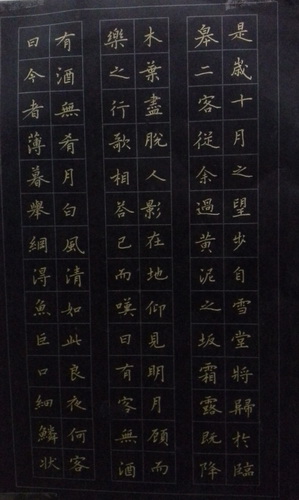 是歲十月之望步自雪堂將歸於臨
臯二客從余過黃泥之坂霜露既降
木葉盡脫人影在地仰見明月顧而
樂之行歌相答已而嘆曰有客無酒
有酒無肴月白風清如此良夜何客
曰今者薄暮舉網得魚巨口細鱗狀